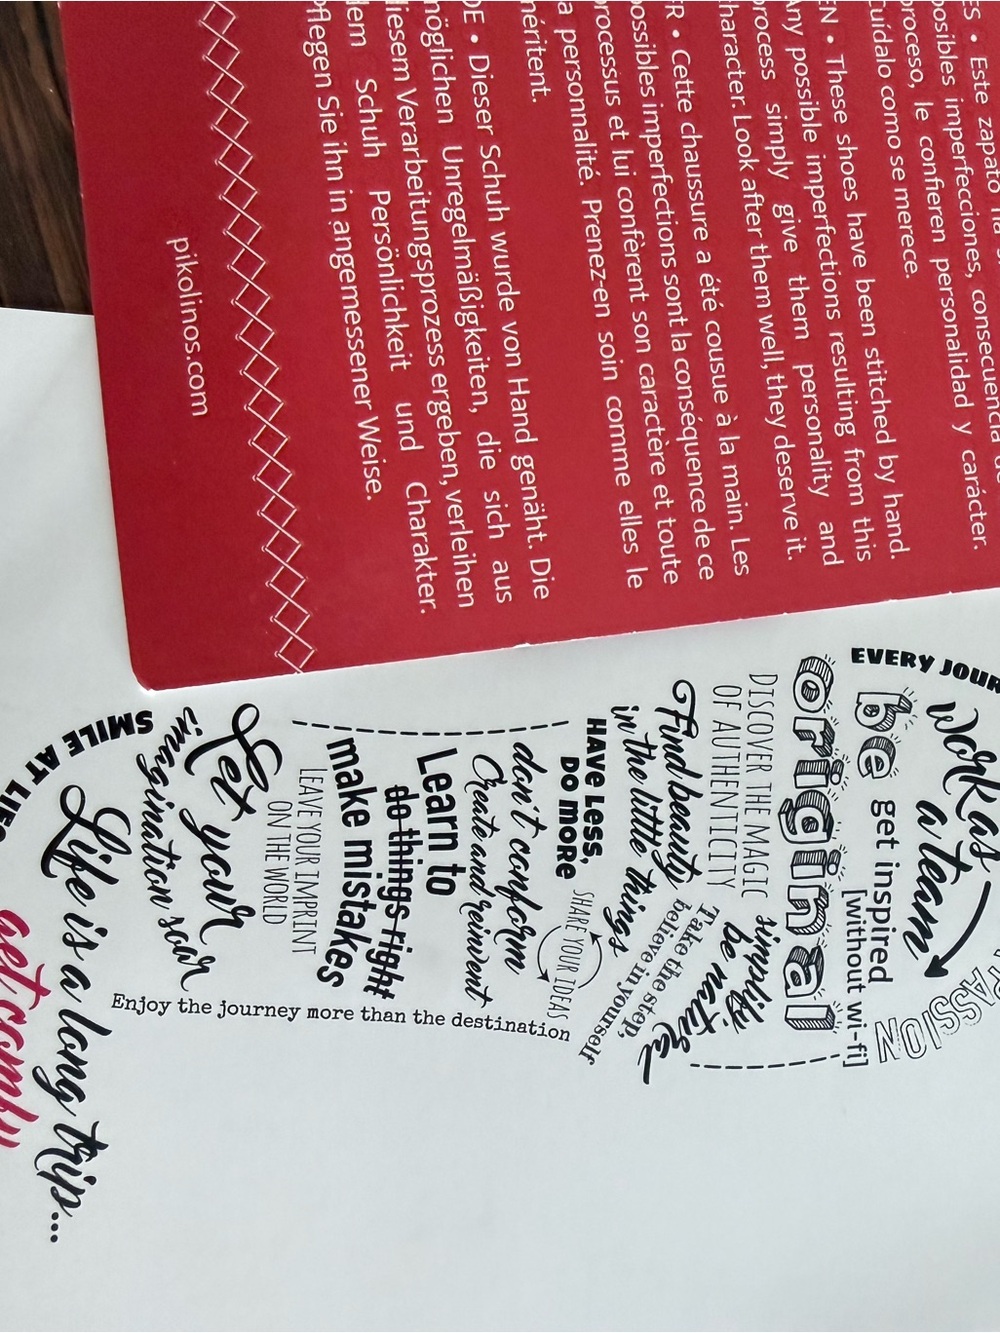 ES • Este zapato ha
posibles imperfecciones, consecuencia de
proceso, le confieren personalidad y carácter.
Cuídalo como se merece.
EN • These shoes have been stitched by hand.
Any possible imperfections resulting from this
process simply give them personality and
character. Look after them well, they deserve it.
FR • Cette chaussure a été cousue à la main. Les
possibles imperfections sont la conséquence de ce
processus et lui confèrent son caractère et toute
a personnalité. Prenez-en soin comme elles le
méritent.
DE • Dieser Schuh wurde von Hand genäht. Die
möglichen Unregelmäßigkeiten, die sich aus
diesem Verarbeitungsprozess ergeben, verleihen
dem Schuh Persönlichkeit und Charakter.
Pflegen Sie ihn in angemessener Weise.
pikolinos.com
EVERY JOUR
work as
a team
PASSION
be get inspired
[without wi-fi]
original
DISCOVER THE MAGIC
OF AUTHENTICITY
simplify,
be natural
Find beauty
in the little things
Take the step,
believe in yourself
HAVE LESS,
DO MORE
SHARE YOUR IDEAS
don't conform
Create and reinvent
Learn to
do things right
make mistakes
LEAVE YOUR IMPRINT
ON THE WORLD
Let your
imagination soar
Enjoy the journey more than the destination
SMILE AT LIFE
Life is a long trip...
get comby